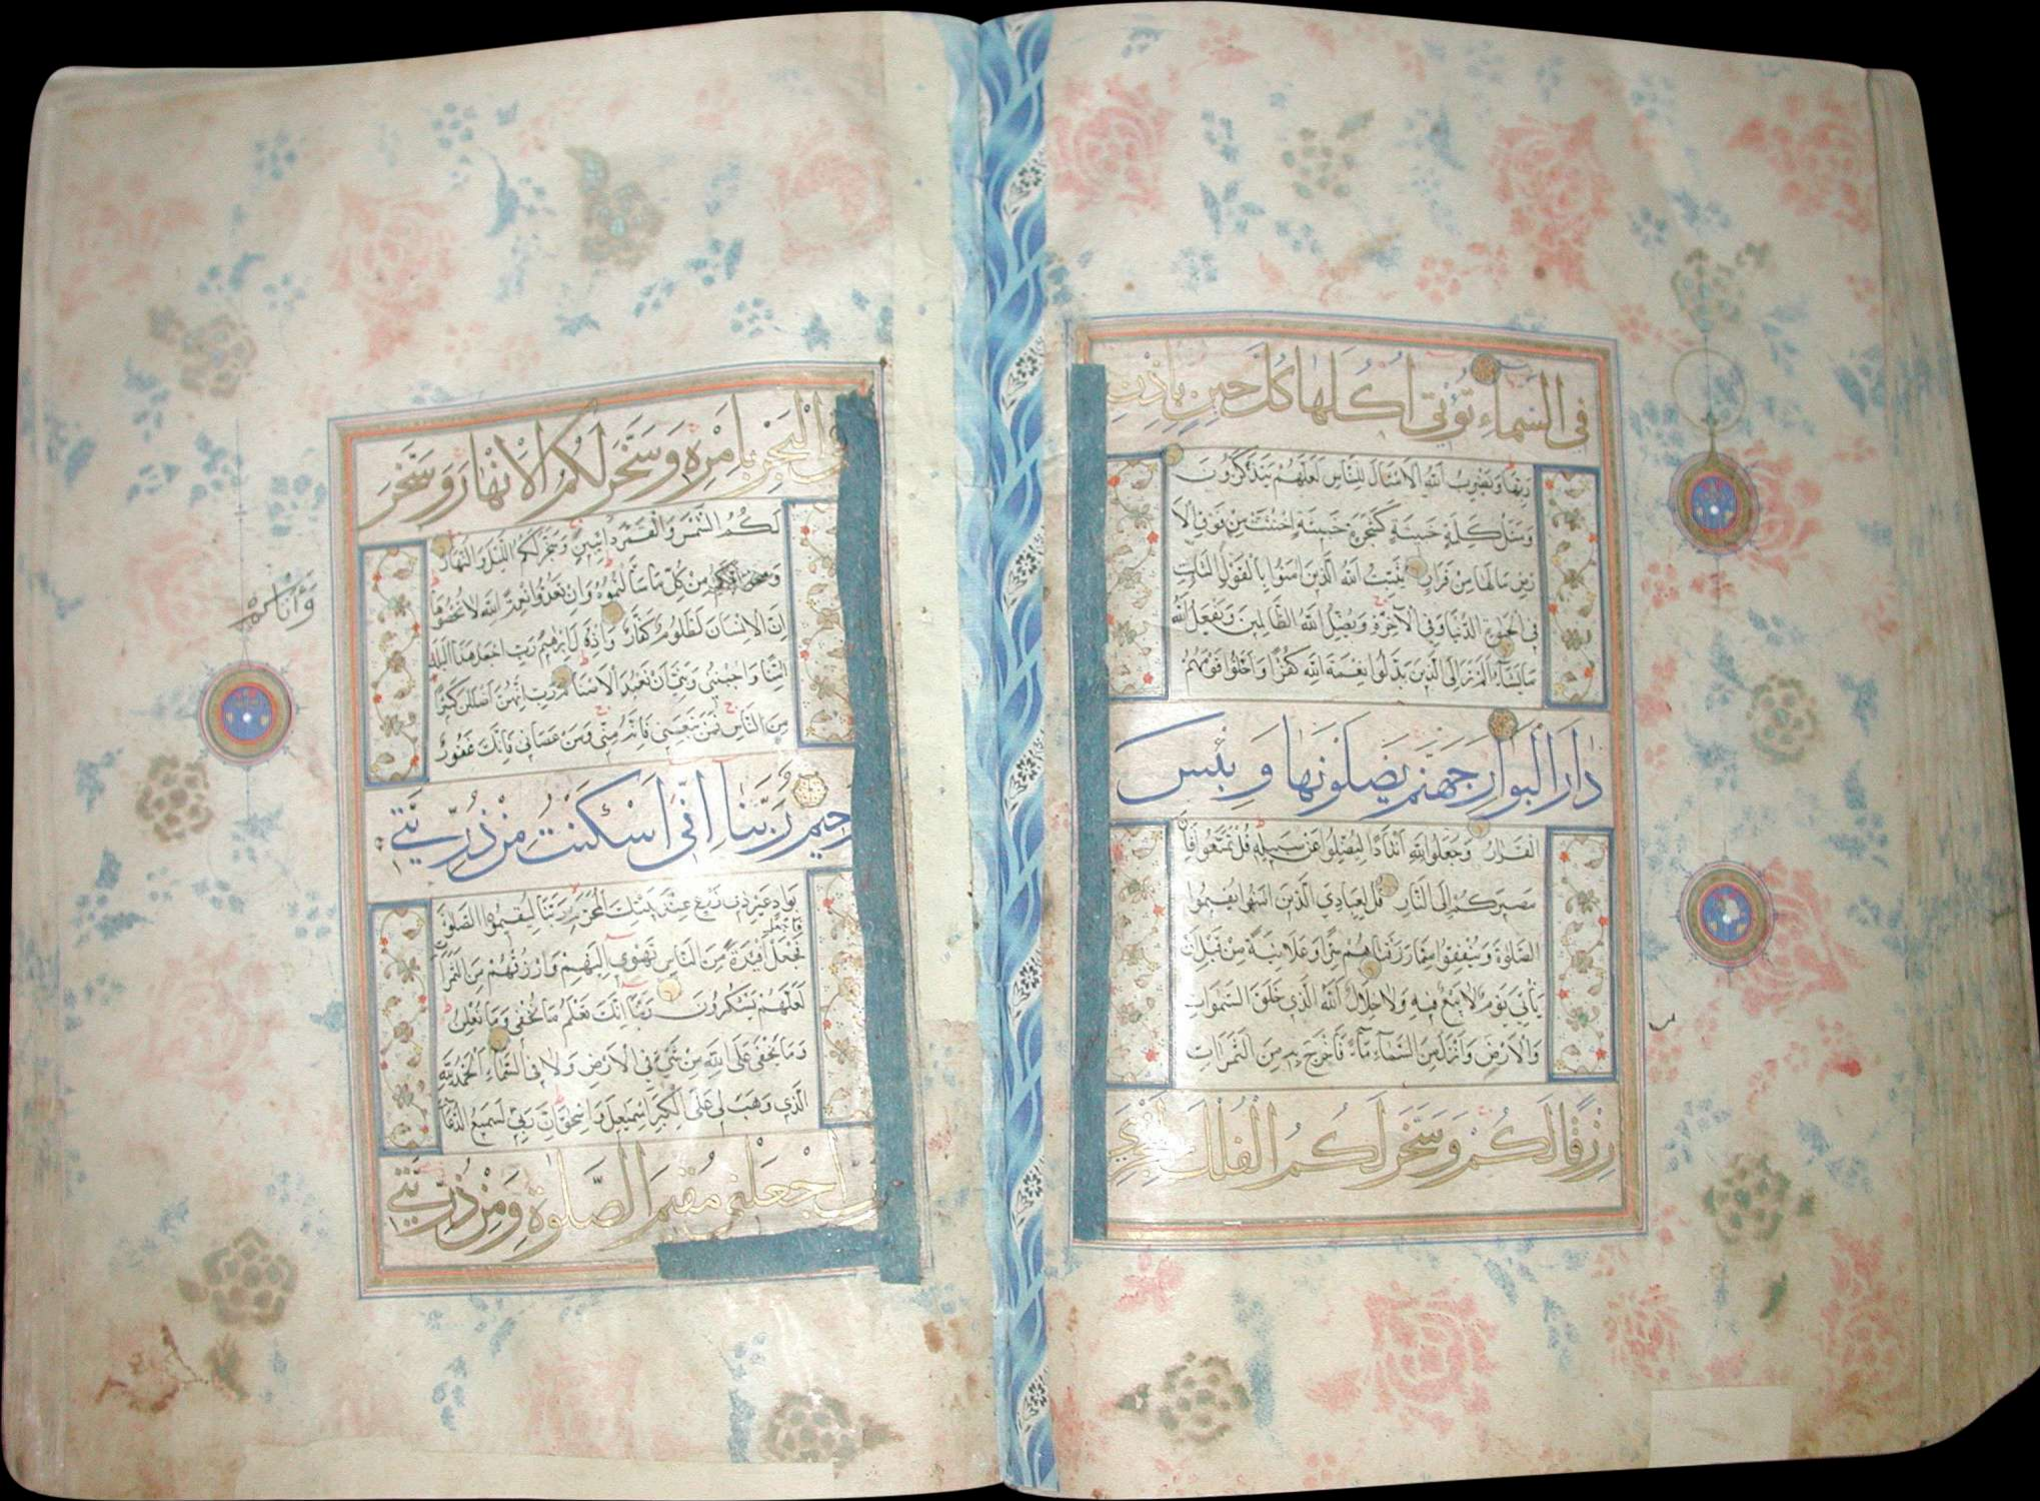 في السماء تؤتي اكلها كل حين باذن
ربها ويضرب الله الامثال للناس لعلهم يتذكرون
ومثل كلمة خبيثة كشجرة خبيثة اجتثت من فوق الا
رض ما لها من قرار يثبت الله الذين امنوا بالقول الثابت
في الحيوة الدنيا وفي الآخرة ويضل الله الظالمين ويفعل الله
ما يشاء الم تر الى الذين بدلوا نعمة الله كفرا واحلوا قومهم
دار البوار جهنم يصلونها وبئس
القرار وجعلوا لله اندادا ليضلوا عن سبيله قل تمتعوا فان
مصيركم الى النار قل لعبادي الذين امنوا يقيموا
الصلوة وينفقوا مما رزقناهم سرا وعلانية من قبل ان
يأتي يوم لا بيع فيه ولا خلال الله الذي خلق السموات
والارض وانزل من السماء ماء فاخرج به من الثمرات
رزقا لكم وسخر لكم الفلك لتجري
في البحر بامره وسخر لكم الانهار وسخر
لكم الشمس والقمر دائبين وسخر لكم الليل والنهار
من كل ما سألتموه وان تعدوا نعمة الله لا تحصوها
ان الانسان لظلوم كفار واذ قال ابرهيم رب اجعل هذا البلد
امنا واجنبني وبني ان نعبد الاصنام رب انهن اضللن كثيرا
من الناس فمن تبعني فانه مني ومن عصاني فانك غفور
رحيم ربنا اني اسكنت من ذريتي
بواد غير ذي زرع عند بيتك المحرم ربنا ليقيموا الصلوة
فاجعل افئدة من الناس تهوي اليهم وارزقهم من الثمرات
لعلهم يشكرون ربنا انك تعلم ما نخفي وما نعلن
وما يخفى على الله من شيء في الارض ولا في السماء الحمد لله
الذي وهب لي على الكبر اسمعيل واسحق ان ربي لسميع الدعاء
رب اجعلني مقيم الصلوة ومن ذريتي